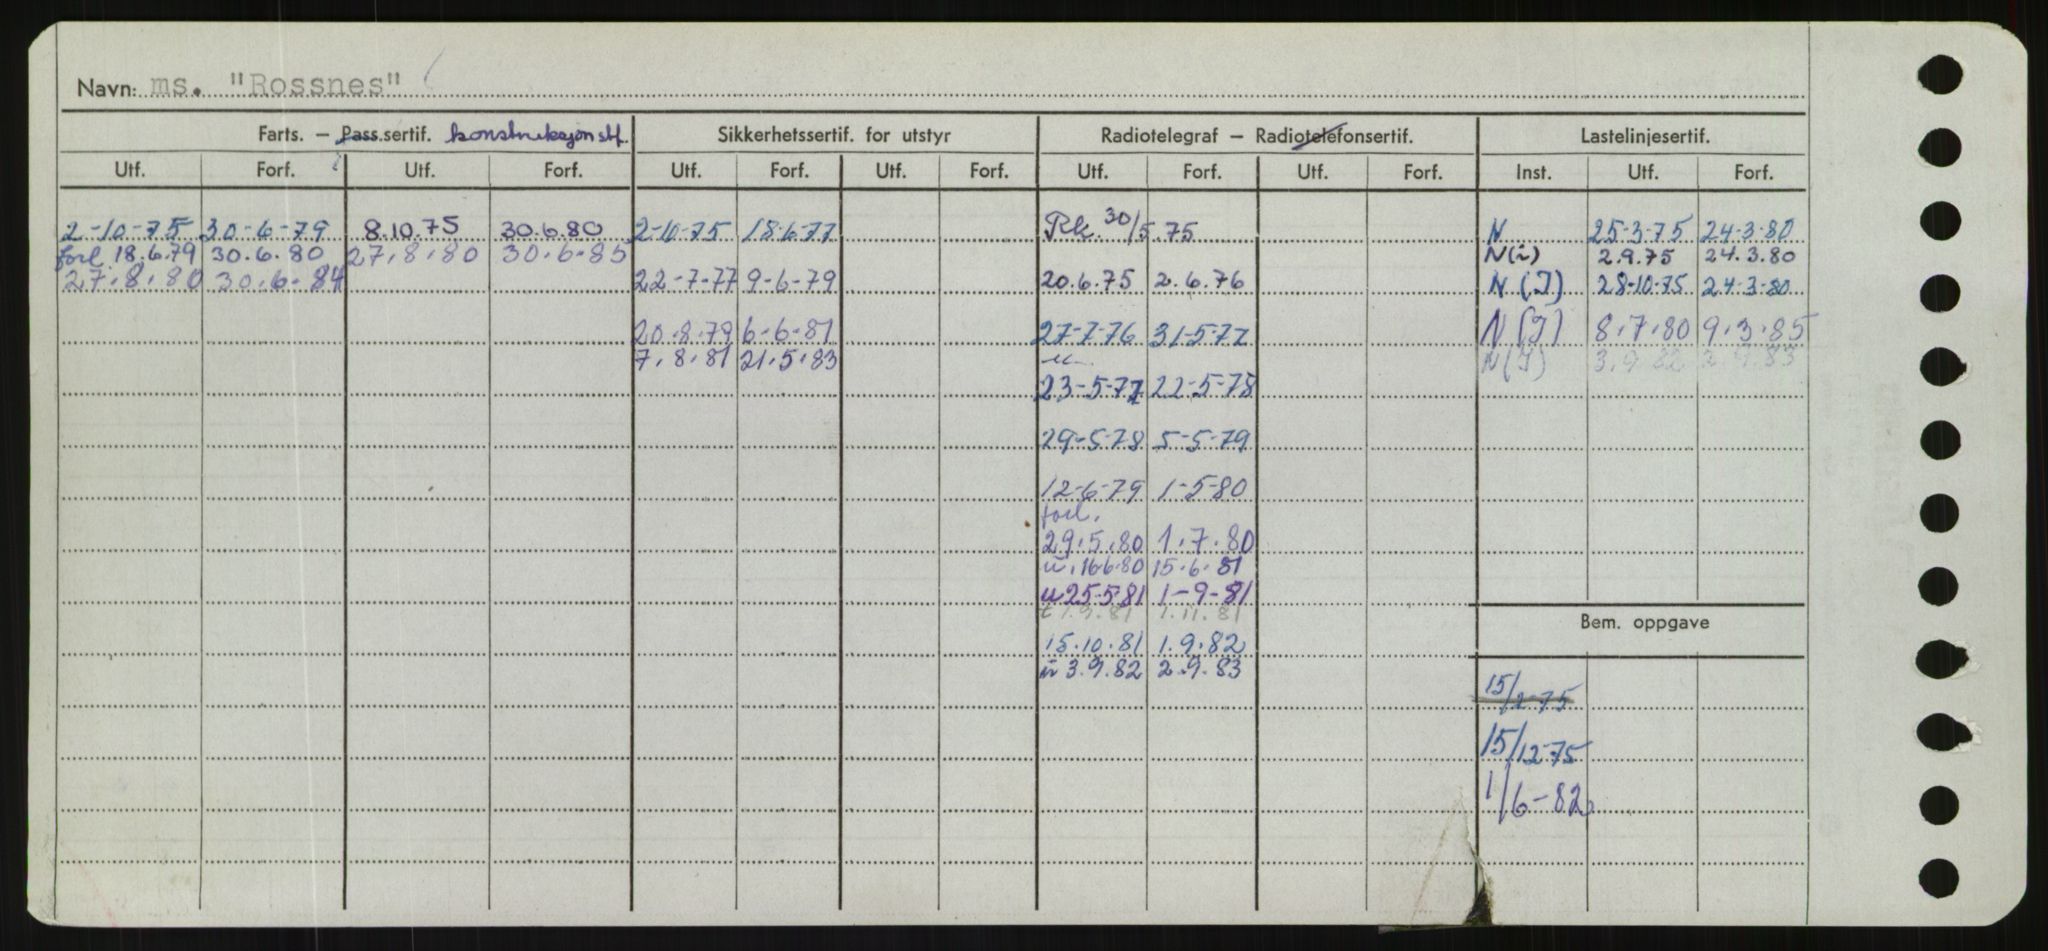 Navn: ms. "Rossnes"
Farts. – Pass.sertif. konstruksjonstf. Sikkerhetssertif. for utstyr Radiotelegraf – Radiotelefonsertif. Lastelinjesertif.
Utf. Forf. Utf. Forf. Utf. Forf. Utf. Forf. Utf. Forf. Utf. Forf. Inst. Utf. Forf.
2-10-75 30-6-79 8.10.75 30.6.80 2-10-75 18-6-77 Rk. 30/5.75 N 25-3-75 24-3-80
forl. 18.6.79 30.6.80 27.8.80 30.6.85 N(i) 2.9.75 24.3.80
27.8.80 30.6.84 22-7-77 9-6-79 20.6.75 2.6.76 N(I) 28-10-75 24-3-80
20.8.79 6-6-81 27-7-76 31-5-77 N(I) 8.7.80 9.3.85
7.8.81 21.5.83 N(I) 3.9.82 2.9.83
23-5-77 22-5-78
29-5-78 5-5-79
12-6-79 1-5-80
forl.
29.5.80 1.7.80
u.16-6-80 15.6.81
u 25-5-81 1-9-81
t 1.9.81 1.11.81
Bem. oppgave
15.10.81 1.9.82
u 3.9.82 2.9.83
15/2-75
15/12-75
1/6-82